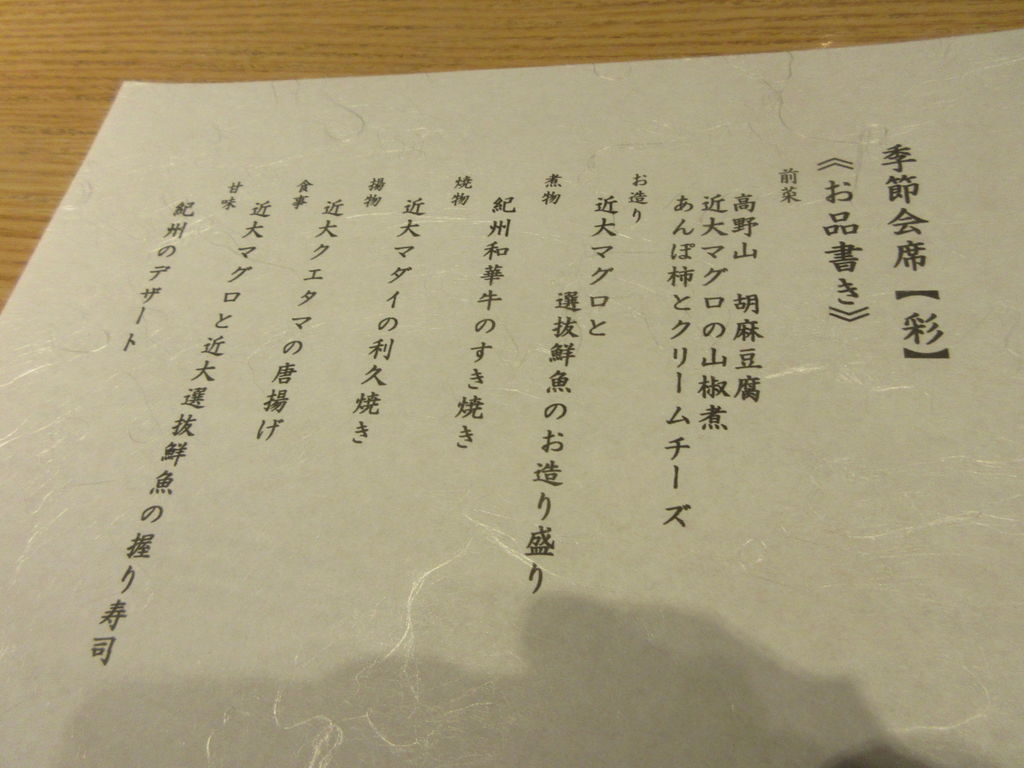 季節会席【彩】
《お品書き》
前菜
高野山　胡麻豆腐
近大マグロの山椒煮
あんぽ柿とクリームチーズ
お造り
近大マグロと
選抜鮮魚のお造り盛り
煮物
紀州和華牛のすき焼き
焼物
近大マダイの利久焼き
揚物
近大クエタマの唐揚げ
食事
近大マグロと近大選抜鮮魚の握り寿司
甘味
紀州のデザート